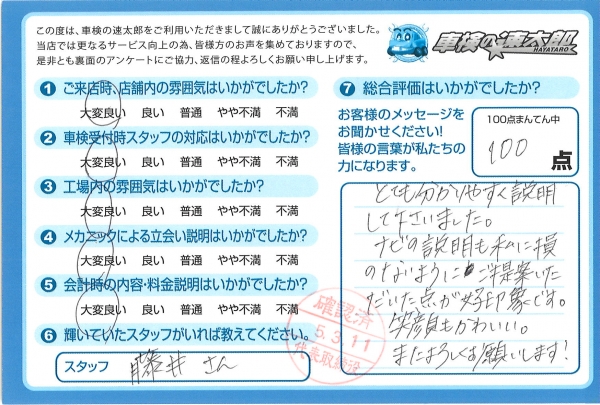 この度は、車検の速太郎をご利用いただきまして誠にありがとうございました。
当店では更なるサービス向上の為、皆様方のお声を集めておりますので、
是非とも裏面のアンケートにご協力、返信の程よろしくお願い申し上げます。
車検の速太郎
HAYATARO
1 ご来店時、店舗内の雰囲気はいかがでしたか?
大変良い 良い 普通 やや不満 不満
2 車検受付時スタッフの対応はいかがでしたか?
大変良い 良い 普通 やや不満 不満
3 工場内の雰囲気はいかがでしたか?
大変良い 良い 普通 やや不満 不満
4 メカニックによる立会い説明はいかがでしたか?
大変良い 良い 普通 やや不満 不満
5 会計時の内容・料金説明はいかがでしたか?
大変良い 良い 普通 やや不満 不満
6 輝いていたスタッフがいれば教えてください。
スタッフ 藤井 さん
確認済
5.3.11
代表取締役
7 総合評価はいかがでしたか?
お客様のメッセージを
お聞かせください!
皆様の言葉が私たちの
力になります。
100点まんてん中
100 点
とても分かりやすく説明
して下さいました。
ナビの説明も私に損
のないように ご提案いた
だいた点が好印象です。
笑顔もかわいい。
またよろしくお願いします!